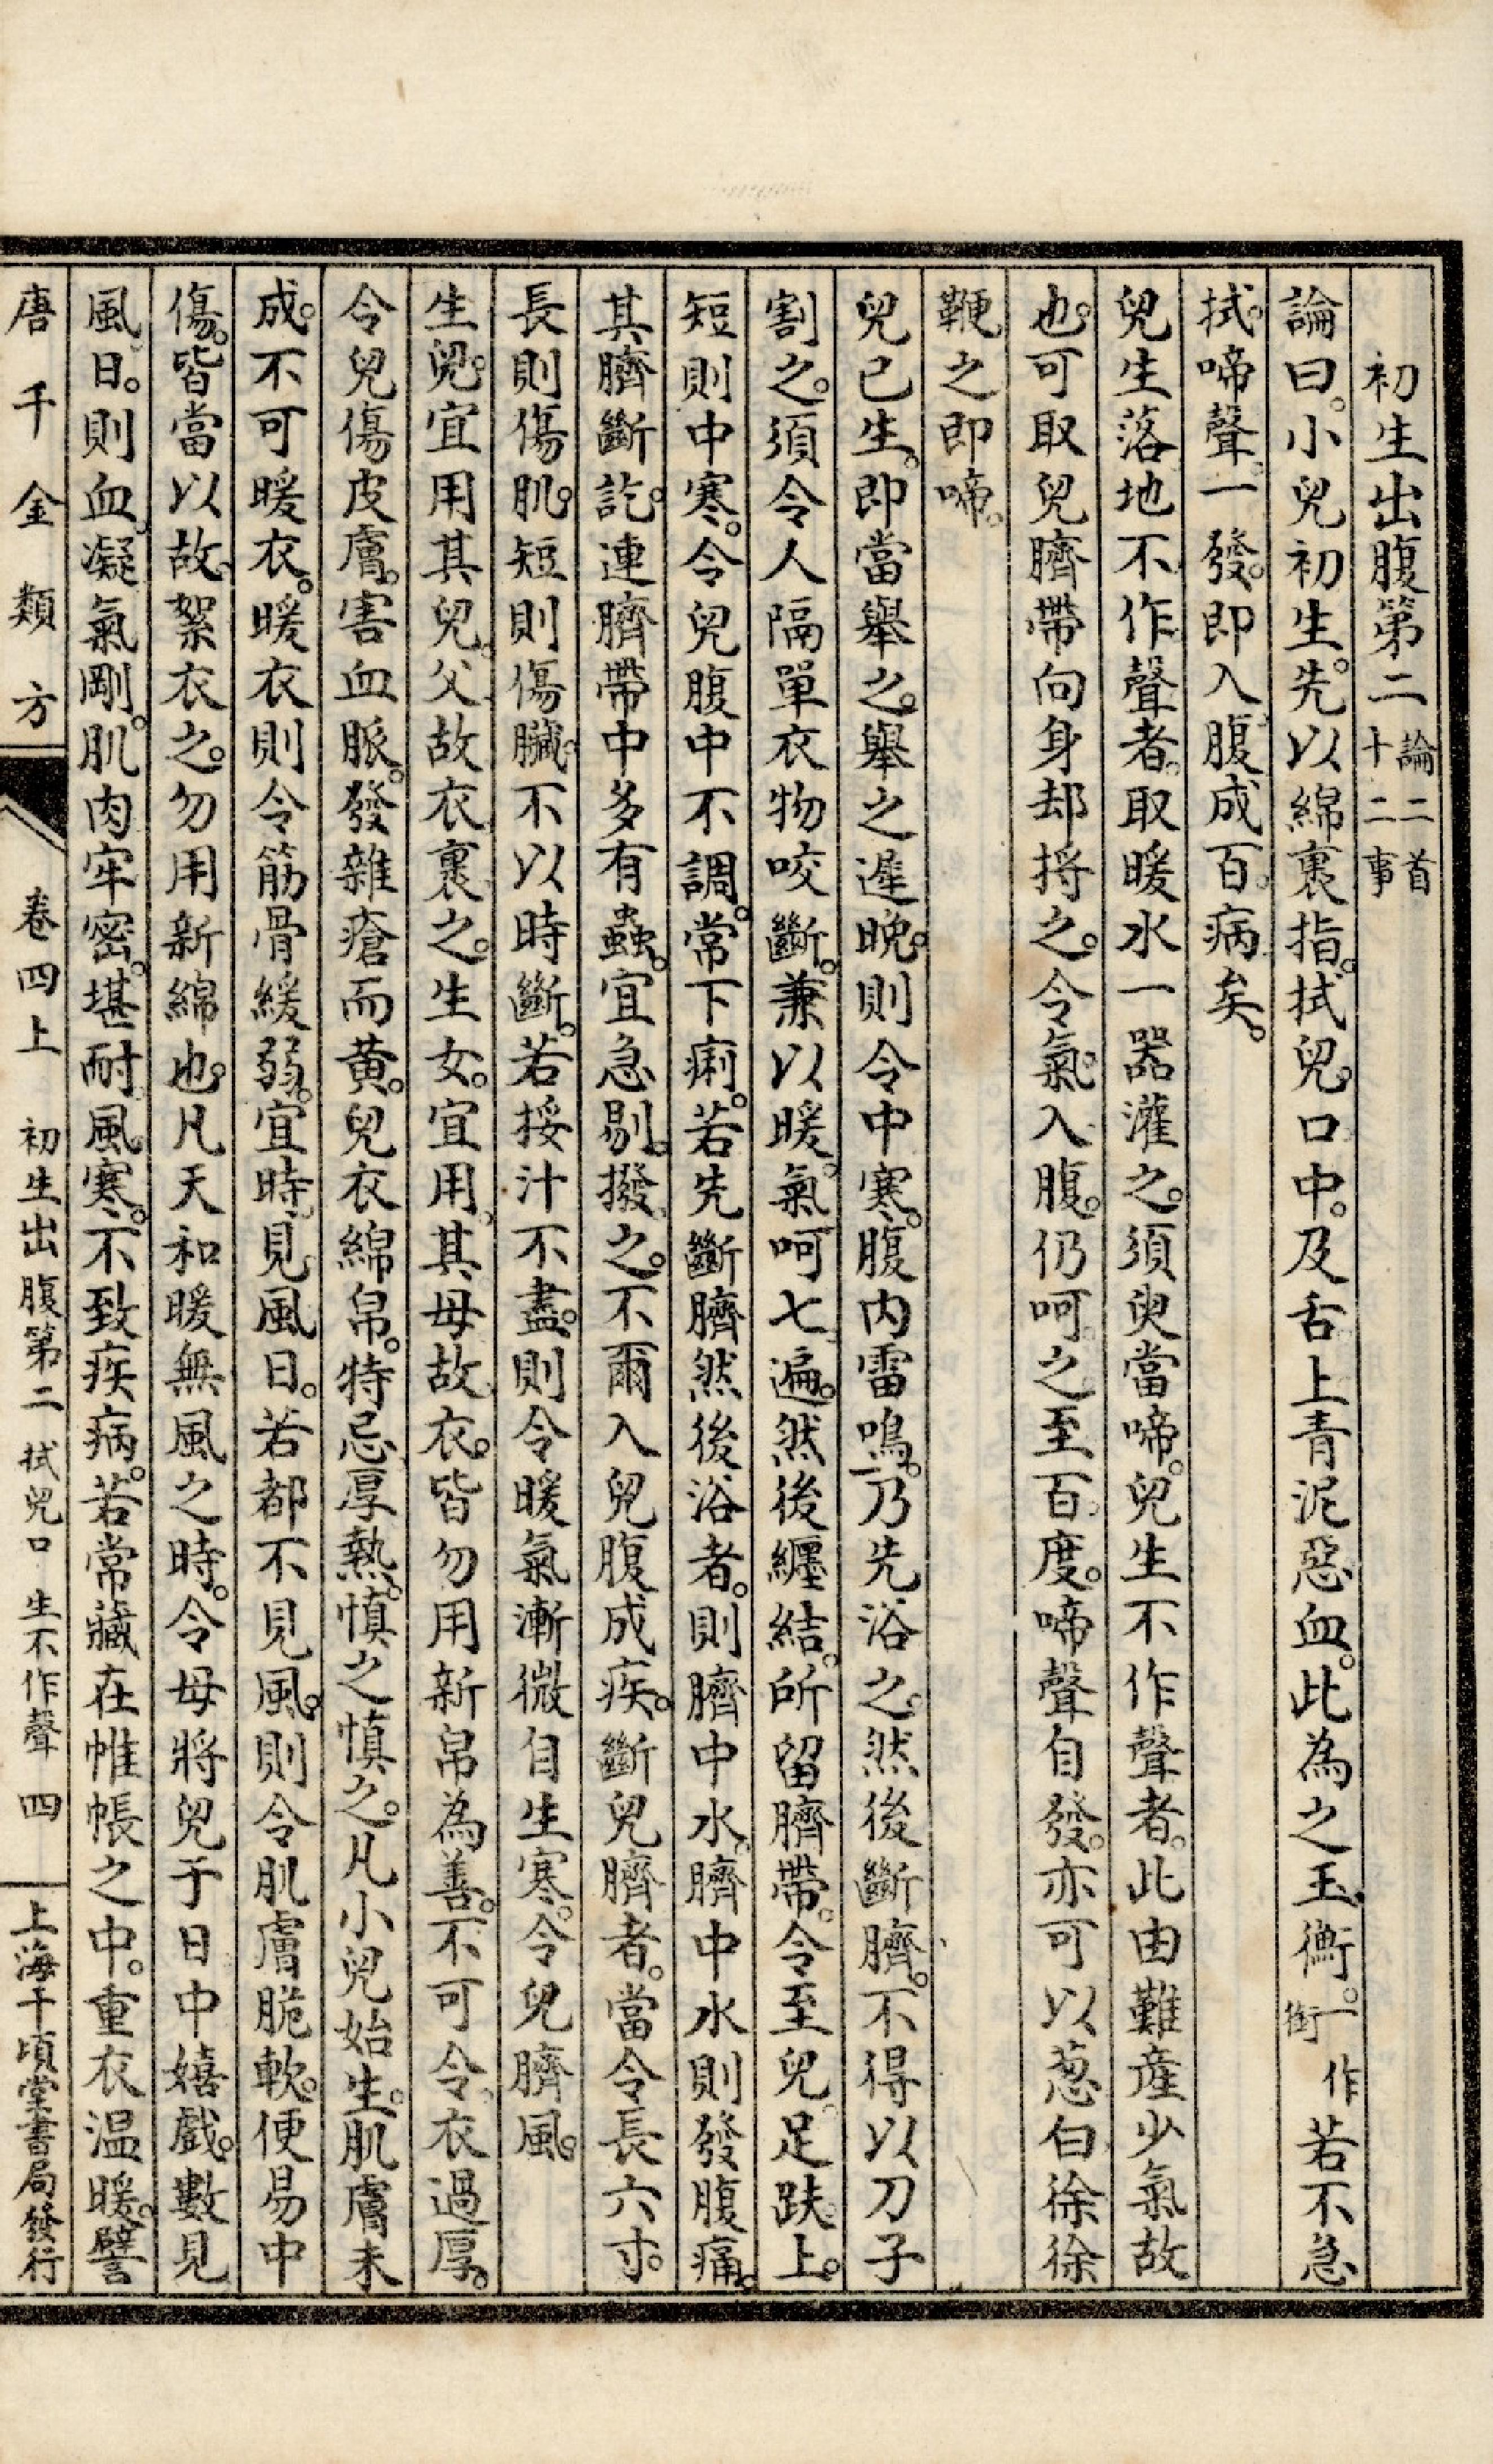 初生出腹第二 論二首 十二事
論曰。小兒初生。先以綿裹指。拭兒口中。及舌上青泥惡血。此為之玉衡。一作衘 若不急
拭。啼聲一發。即入腹成百病矣。
兒生落地不作聲者。取暖水一器灌之。須臾當啼。兒生不作聲者。此由難産少氣故
也。可取兒臍帶向身却捋之。令氣入腹。仍呵之至百度。啼聲自發。亦可以葱白徐徐
鞭之即啼。
兒已生。即當舉之。舉之遲晚。則令中寒。腹内雷鳴。乃先浴之。然後斷臍。不得以刀子
割之。須令人隔單衣物咬斷。兼以暖氣呵七遍。然後纏結。所留臍帶。令至兒足趺上。
短則中寒。令兒腹中不調。常下痢。若先斷臍然後浴者。則臍中水。臍中水則發腹痛。
其臍斷訖。連臍帶中多有蟲。宜急剔。撥之。不爾入兒腹成疾。斷兒臍者。當令長六寸。
長則傷肌。短則傷臟。不以時斷。若挼汁不盡。則令暖氣漸微自生寒。令兒臍風。
生兒。宜用其兒父故衣裹之。生女。宜用其母故衣。皆勿用新帛為善。不可令衣過厚。
令兒傷皮膚。害血脈。發雜瘡而黄。兒衣綿帛。特忌厚熱。慎之慎之。凡小兒始生。肌膚未
成。不可暖衣。暖衣則令筋骨緩弱。宜時見風日。若都不見風。則令肌膚脆軟。便易中
傷。皆當以故絮衣之。勿用新綿也。凡天和暖無風之時。令母將兒于日中嬉戲。數見
風日。則血凝氣剛。肌肉牢密。堪耐風寒。不致疾病。若常藏在帷帳之中。重衣温暖。譬
唐千金類方 卷四上 初生出腹第二 拭兒口 生不作聲 四 上海千頃堂書局發行